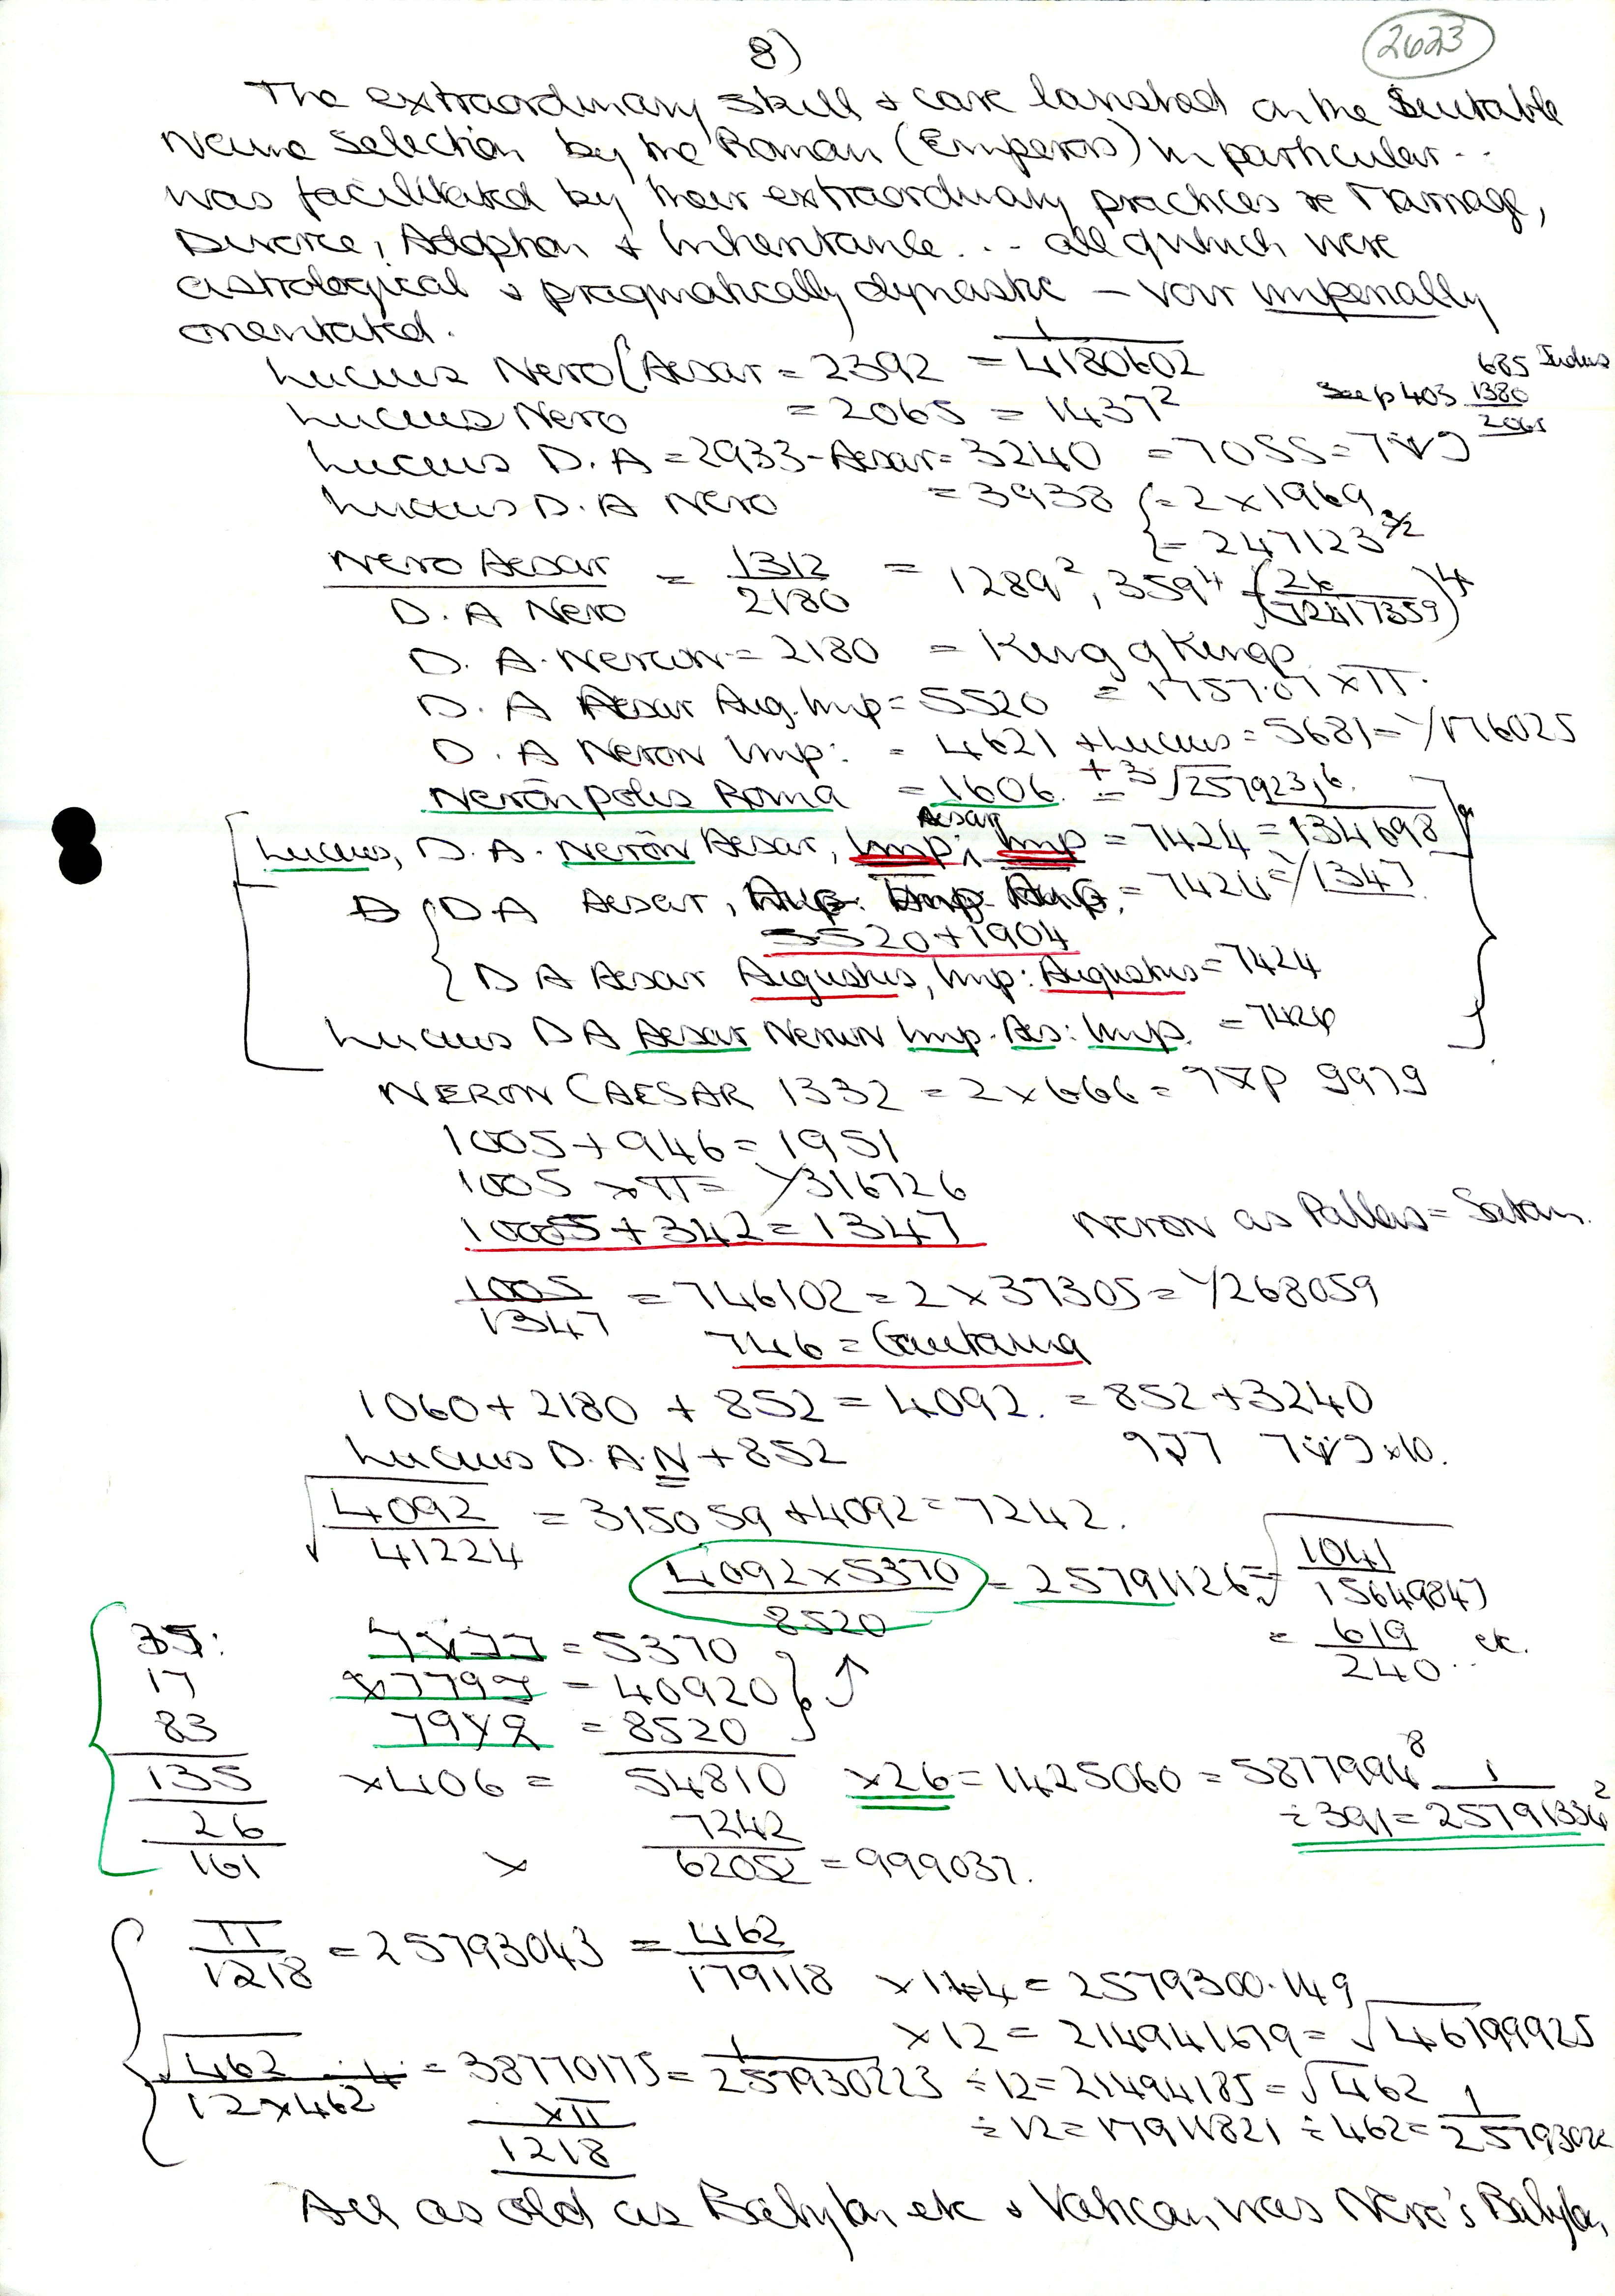 8)
2623
The extraordinary skill + care lavished on the Suitable
Name Selection by the Roman (Emperors) in particular..
was facilitated by their extraordinary practices re Marriage,
Divorce, Adoption + Inheritance... all of which were
astrological & pragmatically dynastic — vour imperially
orientated.
Lucius Nero Caesar = 2392 = 1/4180602
685 Indus
Lucius Nero = 2065 = 1437²
See p403 1380
2065
Lucius D.A = 2933 - Aesar = 3240 = 7055 =
Lucius D.A Nero = 3938 { = 2 x 1969
{ = 247123 3/2
Nero Aesar / D.A Nero = 1312 / 2180 = 1289², 359⁴
D. A. Neron = 2180 = King of Kings
D. A Aesar Aug. Imp = 5520 = 1757.07 x π.
D. A Neron Imp: = 4621 + Lucius = 5681 = Y176025
Nerōnpolis Roma = 1606. = + 3√25792316.
Lucius, D. A. Nerōn Aesar, Imp; Aesar Imp = 7424 = 134698
D A Aesar, Aug. Imp. Aug. = 7424 = Y1347
5520 + 1904
D A Aesar Augustus, Imp: Augustus = 7424
Lucius D A Aesar Neron Imp. Aes: Imp. = 7424
NERON CAESAR 1332 = 2 x 666 = 9979
1005 + 946 = 1951
1005 x π = Y316726
1005 + 342 = 1347 Neron as Pallas = Satan.
1005 / 1347 = 746102 = 2 x 37305 = Y268059
746 = Gautama
1060 + 2180 + 852 = 4092. = 852 + 3240
Lucius D. A. N + 852 x10.
√4092 / 41224 = 315059 + 4092 = 7242.
4092 x 5370 / 8520 = 25791126 = √1041 / 15649847
35: = 5370 = 619 / 240.. etc.
17 = 40920
83 = 8520
135 x 406 = 54810 x 26 = 1425060 = 5877994⁸
26 7242 ÷ 391 = 1/25791334²
161 x 62052 = 999037.
π / 1218 = 25793043 = 462 / 179118 x 144 = 2579300.149
x 12 = 214941679 = √46199925
√462 / 12 x 462 = 38770175 = 1/257930223 ÷ 12 = 21494185 = √462
xπ / 1218 ÷ 12 = 17911821 ÷ 462 =
All as old as Babylon etc & Vatican was Nero's Babylon